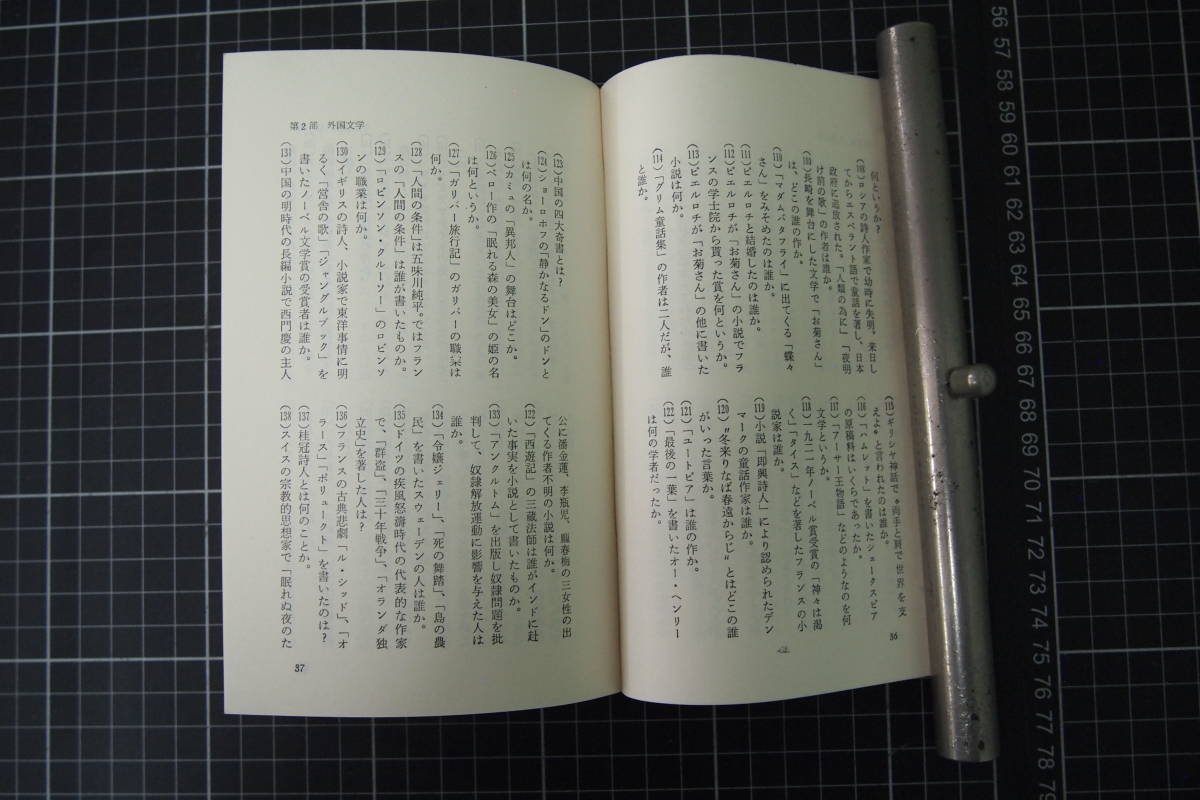 何というか?
(108)ロシアの詩人作家で幼時に失明、来日し
てからエスペラント語で童話を著し、日本
政府に追放された。「人類の為に」「夜明
け前の歌」の作者は誰か。
(109)長崎を舞台にした文学で「お菊さん」
は、どこの誰の作か。
(110)「マダムバタフライ」に出てくる「蝶々
さん」をみそめたのは誰か。
(111)ピエルロチと結婚したのは誰か。
(112)ピエルロチが「お菊さん」の小説でフラ
ンスの学士院から貰った賞を何というか。
(113)ピエルロチが「お菊さん」の他に書いた
小説は何か。
(114)「グリム童話集」の作者は二人だが、誰
と誰か。
(115)ギリシヤ神話で〝両手と肩で世界を支
えよ〟と言われたのは誰か。
(116)「ハムレット」を書いたシェークスピア
の原稿料はいくらであったか。
(117)「アーサー王物語」などのようなのを何
文学というか。
(118)一九二一年ノーベル賞受賞の「神々は渇
く」「タイス」などを著したフランスの小
説家は誰か。
(119)小説「即興詩人」により認められたデン
マークの童話作家は誰か。
(120)〝冬来りなば春遠からじ〟とはどこの誰
がいった言葉か。
(121)「ユートピア」は誰の作か。
(122)「最後の一葉」を書いたオー・ヘンリー
は何の学者だったか。
36
第2部 外国文学
(123)中国の四大奇書とは?
(124)ショーロホフの「静かなるドン」のドンと
は何の名か。
(125)カミュの「異邦人」の舞台はどこか。
(126)ペロー作の「眠れる森の美女」の姫の名
は何というか。
(127)「ガリバー旅行記」のガリバーの職業は
何か。
(128)「人間の条件」は五味川純平。ではフラン
スの「人間の条件」は誰が書いたものか。
(129)「ロビンソン・クルーソー」のロビンソ
ンの職業は何か。
(130)イギリスの詩人、小説家で東洋事情に明
るく「営舎の歌」「ジャングルブック」を
書いたノーベル文学賞の受賞者は誰か。
(131)中国の明時代の長編小説で西門慶の主人
公に潘金蓮、李瓶児、龐春梅の三女性の出
てくる作者不明の小説は何か。
(122)「西遊記」の三蔵法師は誰がインドに赴
いた事実を小説として書いたものか。
(133)「アンクルトム」を出版し奴隷問題を批
判して、奴隷解放運動に影響を与えた人は
誰か。
(134)「令嬢ジェリー」、「死の舞踏」、「島の農
民」を書いたスウェーデンの人は誰か。
(135)ドイツの疾風怒濤時代の代表的な作家
で、「群盗」、「三十年戦争」、「オランダ独
立史」を著した人は?
(136)フランスの古典悲劇「ル・シッド」、「オ
ラース」「ポリュークト」を書いたのは?
(137)桂冠詩人とは何のことか。
(138)スイスの宗教的思想家で「眠れぬ夜のた
37
56
57
58
59
60
61
62
63
64
65
66
67
68
69
70
71
72
73
74
75
76
77
78
79